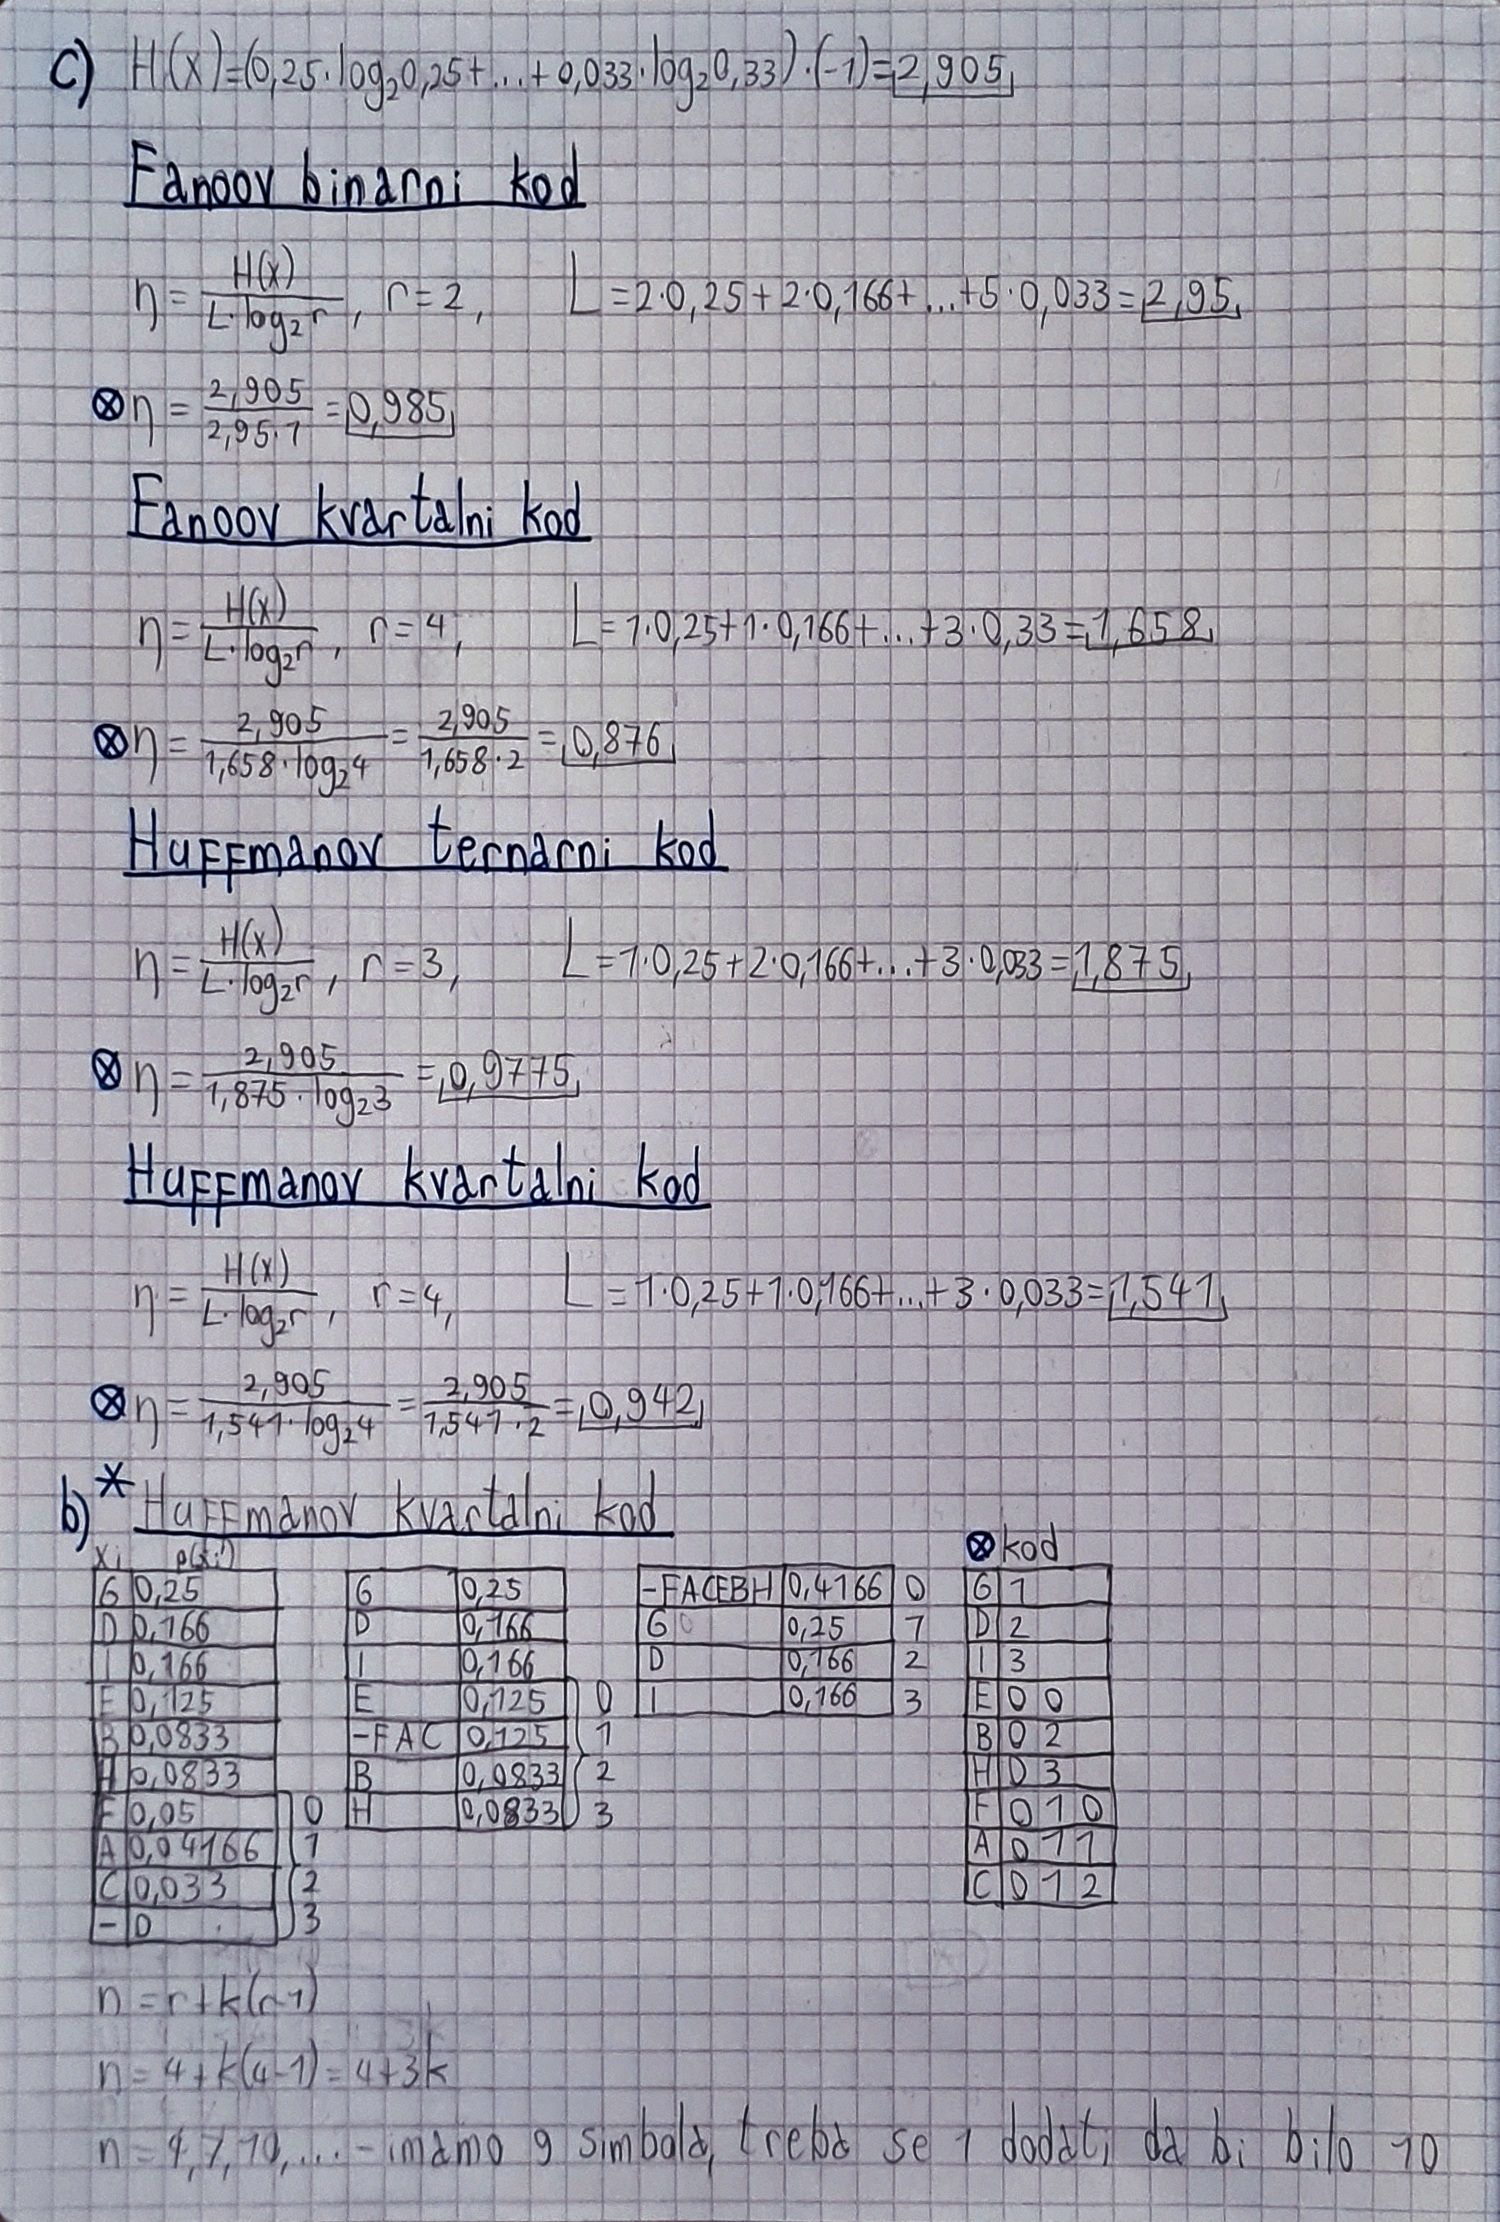 c) H(x)=(0,25·log₂0,25+...+0,033·log₂0,33)·(-1)=2,905
Fanoov binarni kod
η = H(x) / L·log₂r , r=2, L=2·0,25+2·0,166+...+5·0,033=2,95
⊗ η = 2,905 / 2,95·1 = 0,985
Fanoov kvartalni kod
η = H(x) / L·log₂r , r=4, L=1·0,25+1·0,166+...+3·0,33=1,658
⊗ η = 2,905 / 1,658·log₂4 = 2,905 / 1,658·2 = 0,876
Huffmanov ternarni kod
η = H(x) / L·log₂r , r=3, L=1·0,25+2·0,166+...+3·0,033=1,875
⊗ η = 2,905 / 1,875·log₂3 = 0,9775
Huffmanov kvartalni kod
η = H(x) / L·log₂r , r=4, L=1·0,25+1·0,166+...+3·0,033=1,541
⊗ η = 2,905 / 1,541·log₂4 = 2,905 / 1,541·2 = 0,942
b) * Huffmanov kvartalni kod
xi p(xi)
G 0,25
D 0,166
I 0,166
E 0,125
B 0,0833
H 0,0833
F 0,05 0
A 0,04166 1
C 0,033 2
- 0 3
G 0,25
D 0,166
I 0,166
E 0,125 0
-FAC 0,125 1
B 0,0833 2
H 0,0833 3
-FACEBH 0,4166 0
G 0,25 1
D 0,166 2
I 0,166 3
⊗ kod
G 1
D 2
I 3
E 0 0
B 0 2
H 0 3
F 0 1 0
A 0 1 1
C 0 1 2
n = r+k(r-1)
n = 4+k(4-1)=4+3k
n = 4,7,10,... - imamo 9 simbola, treba se 1 dodati da bi bilo 10